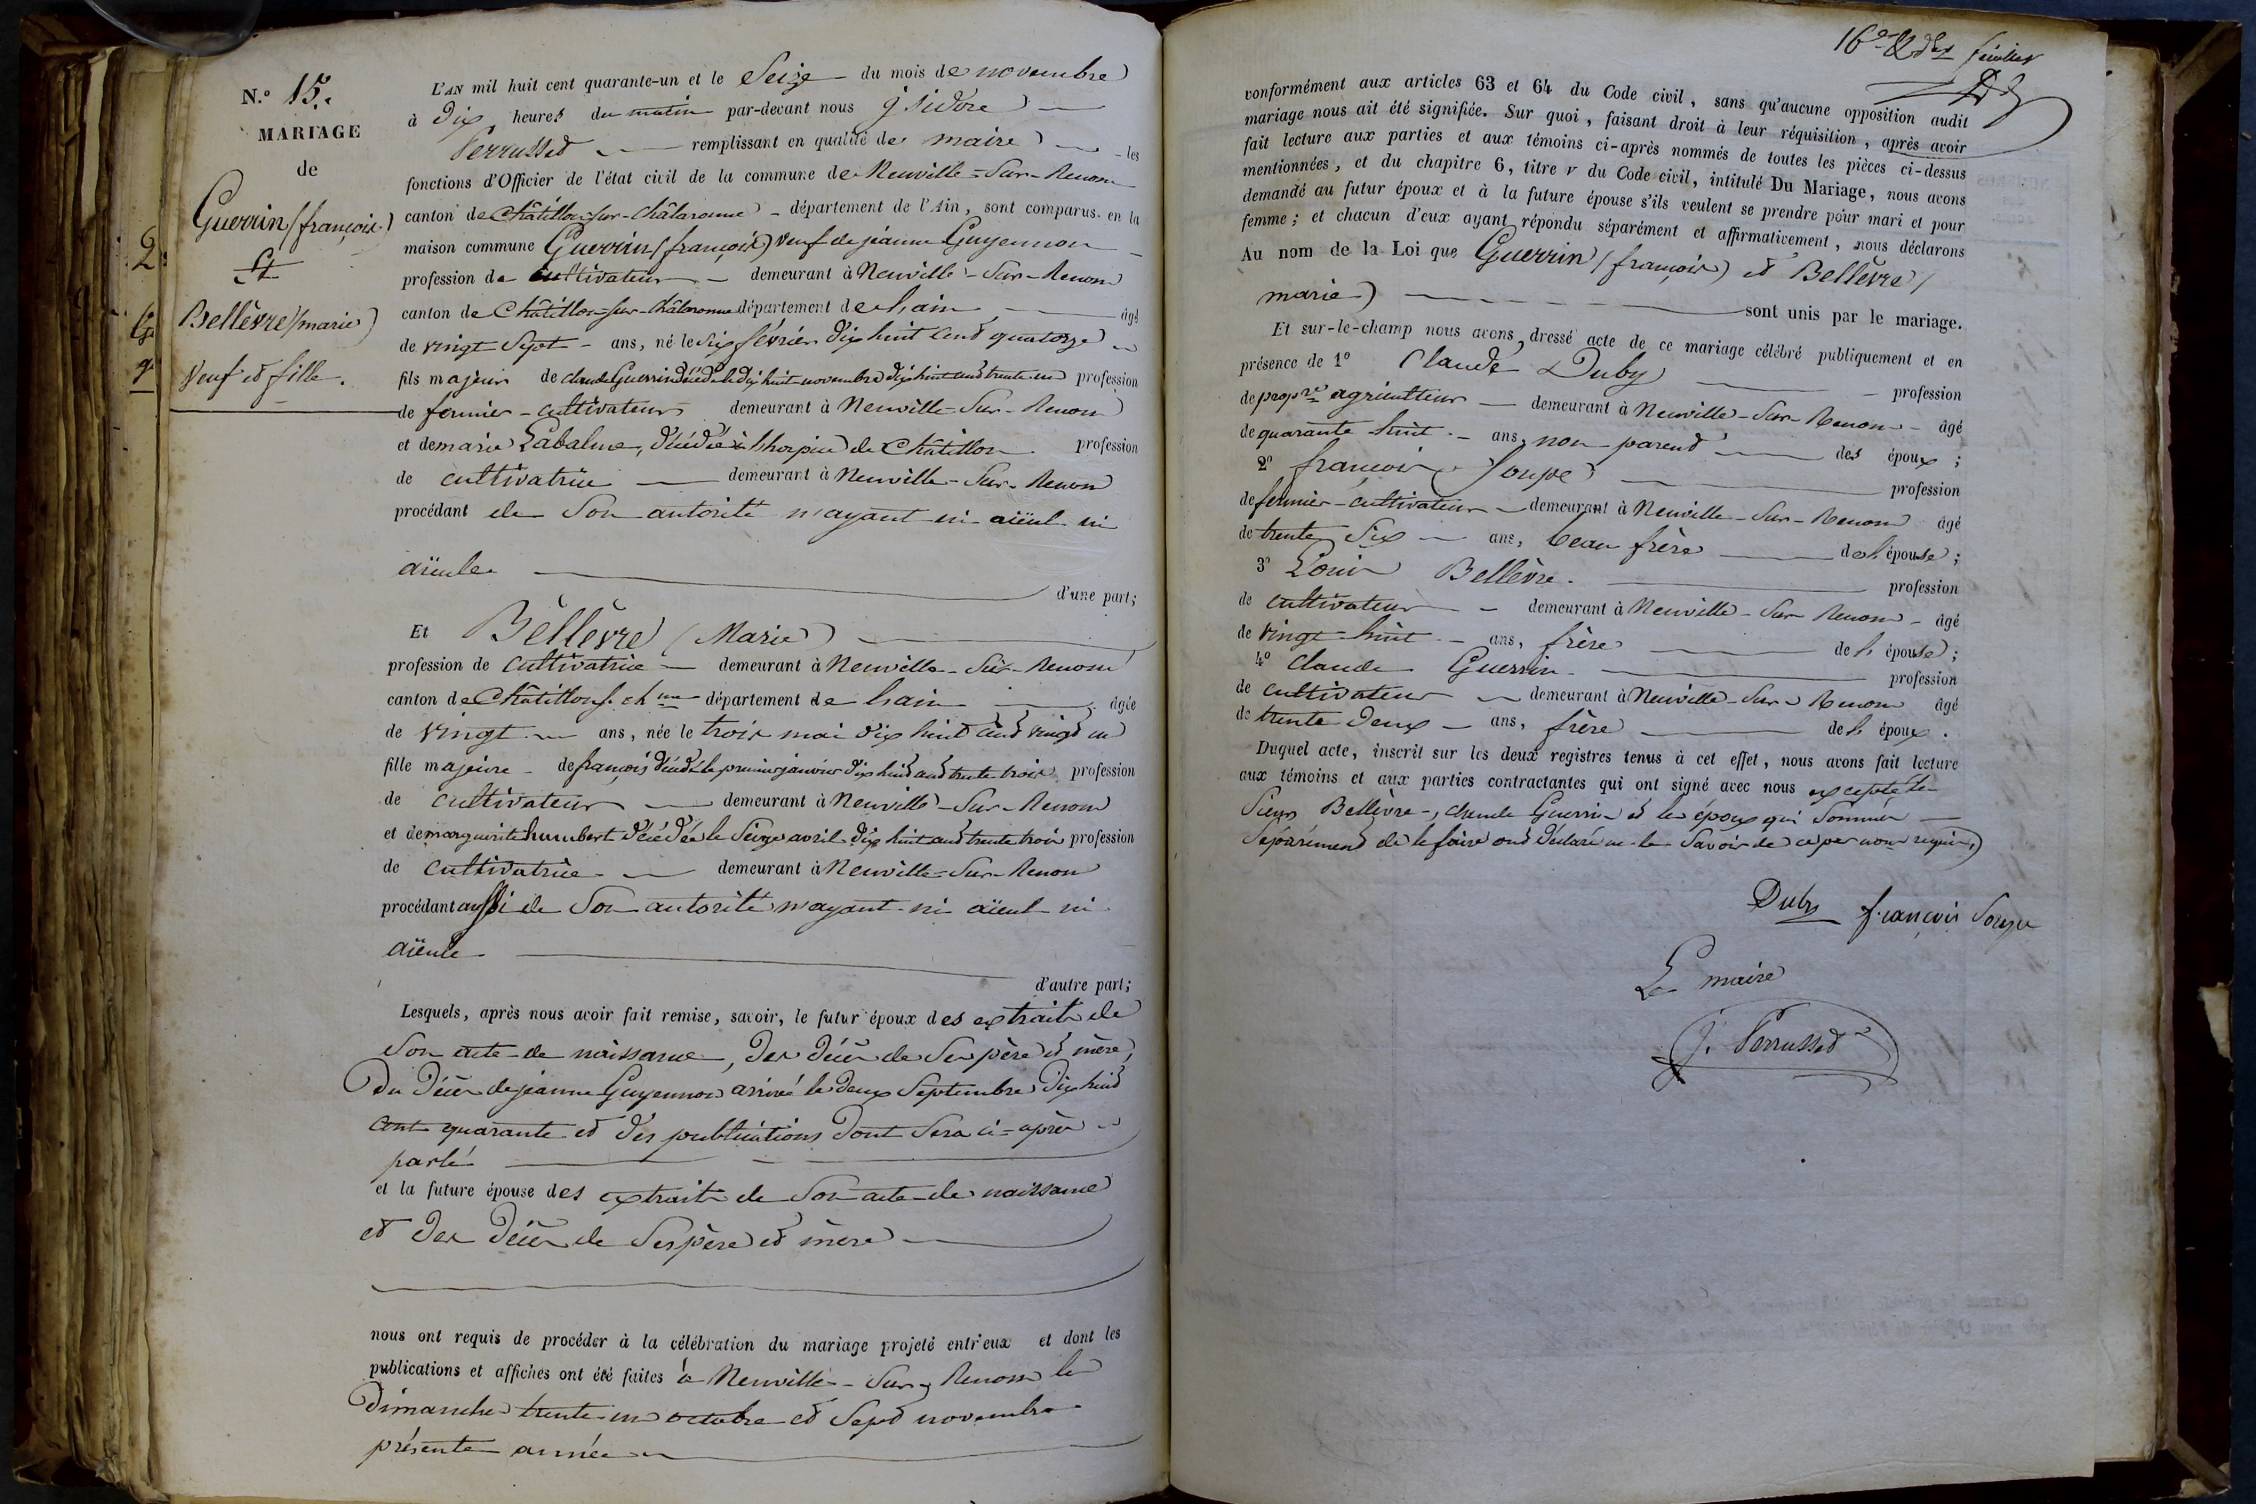 N.° 15.
MARIAGE
de
Guerrin (françois)
et
Bellèvre (marie)
veuf et fille.
L'AN mil huit cent quarante-un et le Seize du mois de novembre
à Dix heures du matin par-devant nous jsidore
Perrussed remplissant en qualité de maire les
fonctions d'Officier de l'état civil de la commune de Neuville-Sur-Renom
canton de Châtillon-sur-châlaronne département de l'Ain, sont comparus en la
maison commune Guerrin (françois) veuf de jeanne Guyennon
profession de cultivateur demeurant à Neuville-Sur-Renom
canton de Châtillon-sur-châlaronne département de lain âgé
de vingt Sept ans, né le Six février dix huit cent quatorze
fils majeur de claude Guerrin décédé le dix huit novembre dix huit cent trente un profession
de fermier-cultivateur demeurant à Neuville-Sur-Renom
et de marie Labalme, décédée à lhospice de Châtillon profession
de cultivatrice demeurant à Neuville-Sur-Renom
procédant de Son autorité n'ayant ni aïeul ni
aïeule
d'une part;
Et Bellèvre (Marie)
profession de cultivatrice demeurant à Neuville-Sur-Renom
canton de Châtillon s. ch.nne département de lain âgée
de vingt ans, née le trois mai dix huit cent vingt un
fille majeure de françois décédé le premier janvier dix huit cent trente trois profession
de cultivateur demeurant à Neuville-Sur-Renom
et de marguerite humbert décédée le Seize avril dix huit cent trente trois profession
de cultivatrice demeurant à Neuville-Sur-Renom
procédant aussi de Son autorité n'ayant ni aïeul ni
aïeule
d'autre part;
Lesquels, après nous avoir fait remise, savoir, le futur époux des extraits de
Son acte de naissance, des décès de Ses père et mère,
Du Décès de jeanne Guyennon arrivé le deux Septembre dix huit
cent quarante et des publications dont Sera ci-après
parlé
et la future épouse des extraits de Son acte de naissance
et des décès de Ses père et mère
nous ont requis de procéder à la célébration du mariage projeté entr'eux et dont les
publications et affiches ont été faites à Neuville-Sur-Renom les
Dimanches trente un octobre et Sept novembre
présente année
16e & der feuillet
conformément aux articles 63 et 64 du Code civil, sans qu'aucune opposition audit
mariage nous ait été signifiée. Sur quoi, faisant droit à leur réquisition, après avoir
fait lecture aux parties et aux témoins ci-après nommés de toutes les pièces ci-dessus
mentionnées, et du chapitre 6, titre v du Code civil, intitulé Du Mariage, nous avons
demandé au futur époux et à la future épouse s'ils veulent se prendre pour mari et pour
femme; et chacun d'eux ayant répondu séparément et affirmativement, nous déclarons
Au nom de la Loi que Guerrin (françois) et Bellèvre (
marie) sont unis par le mariage.
Et sur-le-champ nous avons dressé acte de ce mariage célébré publiquement et en
présence de 1° Claude Duby profession
de propre agriculteur demeurant à Neuville-Sur-Renom âgé
de quarante huit ans, non parent des époux;
2° françois Soupe profession
de fermier-cultivateur demeurant à Neuville-Sur-Renom âgé
de trente Six ans, beau frère de l'épouse;
3° Louis Bellèvre. profession
de cultivateur demeurant à Neuville-Sur-Renom âgé
de vingt-huit ans, frère de l'épouse;
4° claude Guerrin profession
de cultivateur demeurant à Neuville-Sur-Renom âgé
de trente deux ans, frère de l'époux.
Duquel acte, inscrit sur les deux registres tenus à cet effet, nous avons fait lecture
aux témoins et aux parties contractantes qui ont signé avec nous excepté le
Sieur Bellèvre, claude Guerrin et les époux qui Sommés
Séparément de le faire ont déclaré ne le Savoir de ce par nous requis.
Duby françois Soupe
Le maire
J. Perrussed